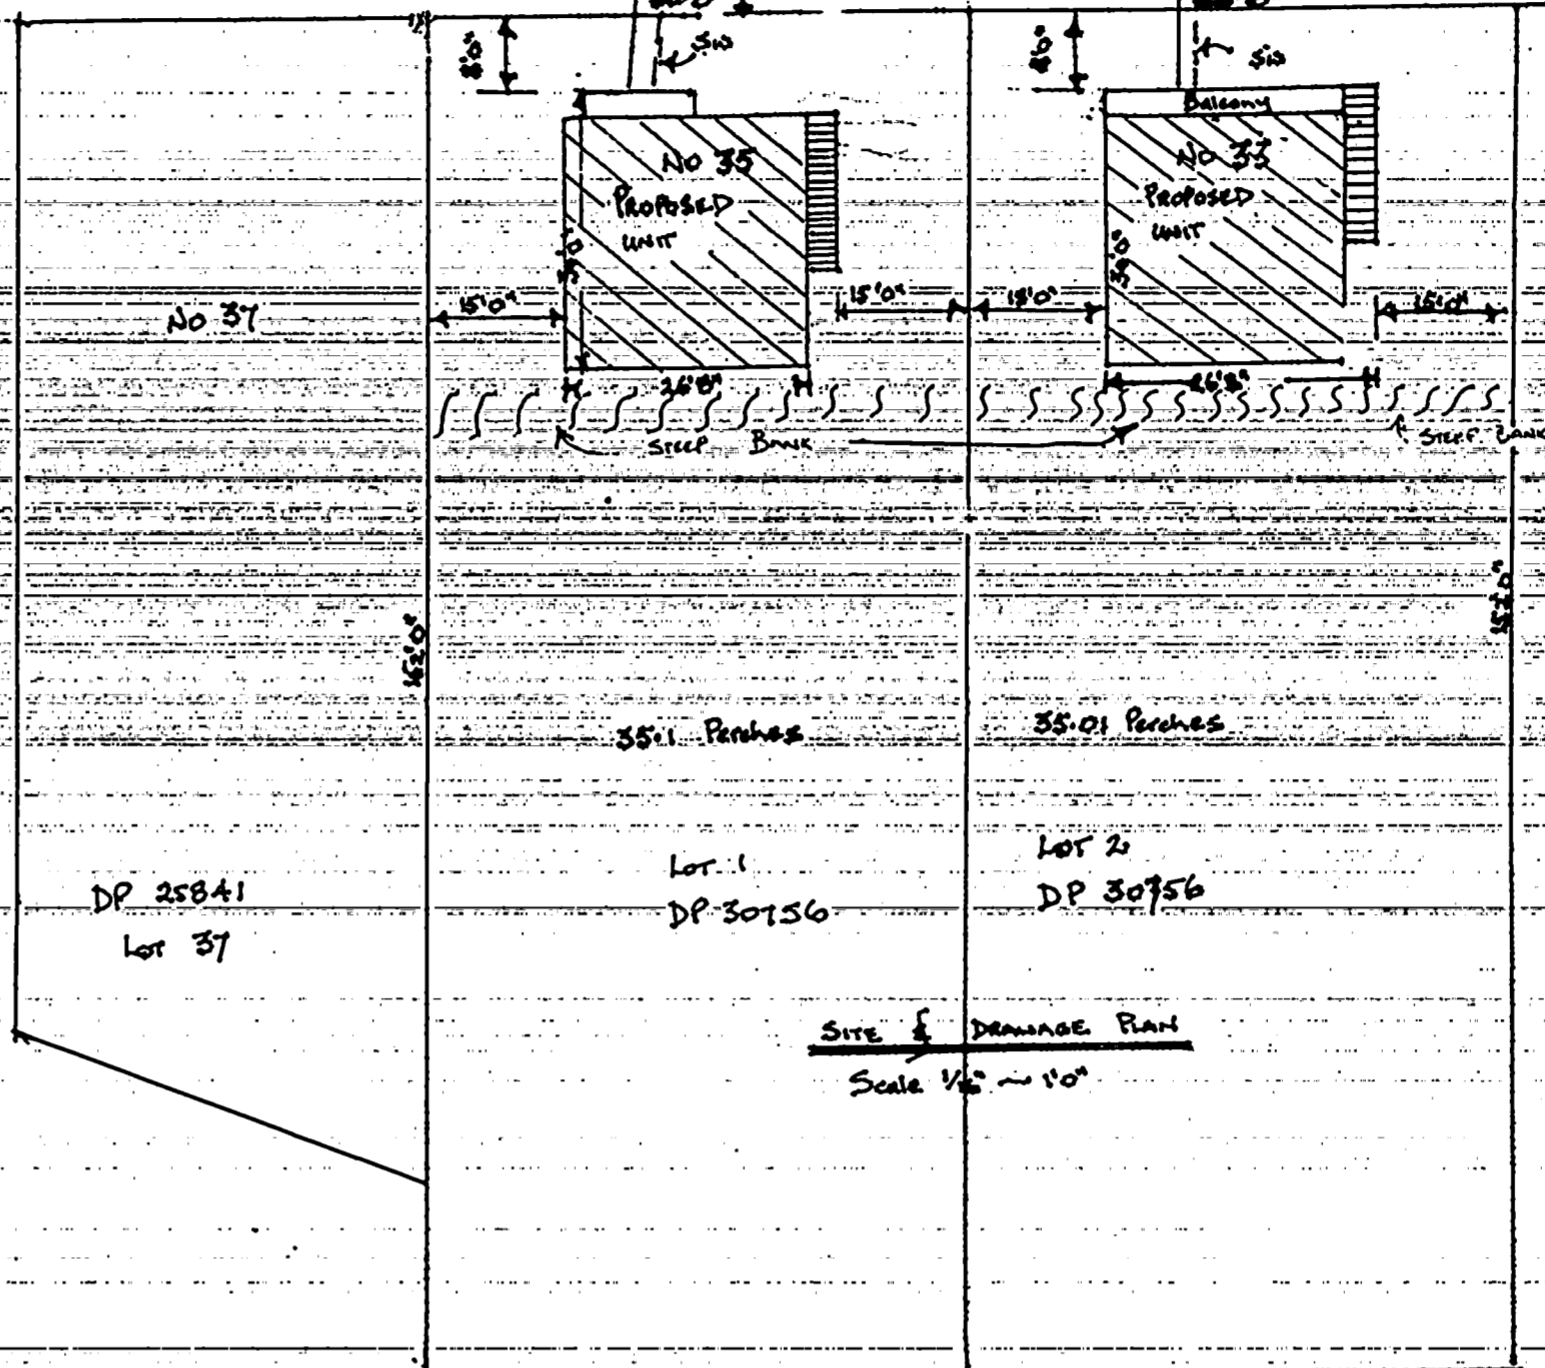 SW
SW
Balcony
No 35
PROPOSED
UNIT
No 33
PROPOSED
UNIT
No 37
15'0"
15'0"
15'0"
15'0"
26'8"
26'8"
STEEP BANK
STEEP BANK
162'0"
35.1 Perches
35.01 Perches
DP 25841
Lot 37
Lot 1
DP 30756
Lot 2
DP 30756
SITE & DRAINAGE PLAN
Scale 1/16" ~ 1'0"